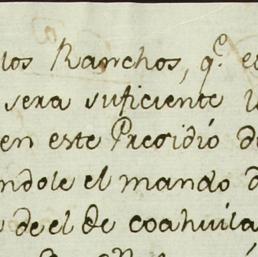 los Ranchos, q.e e
sera suficiente
en este Presidio d
ndole el mando d
de el de coahuila